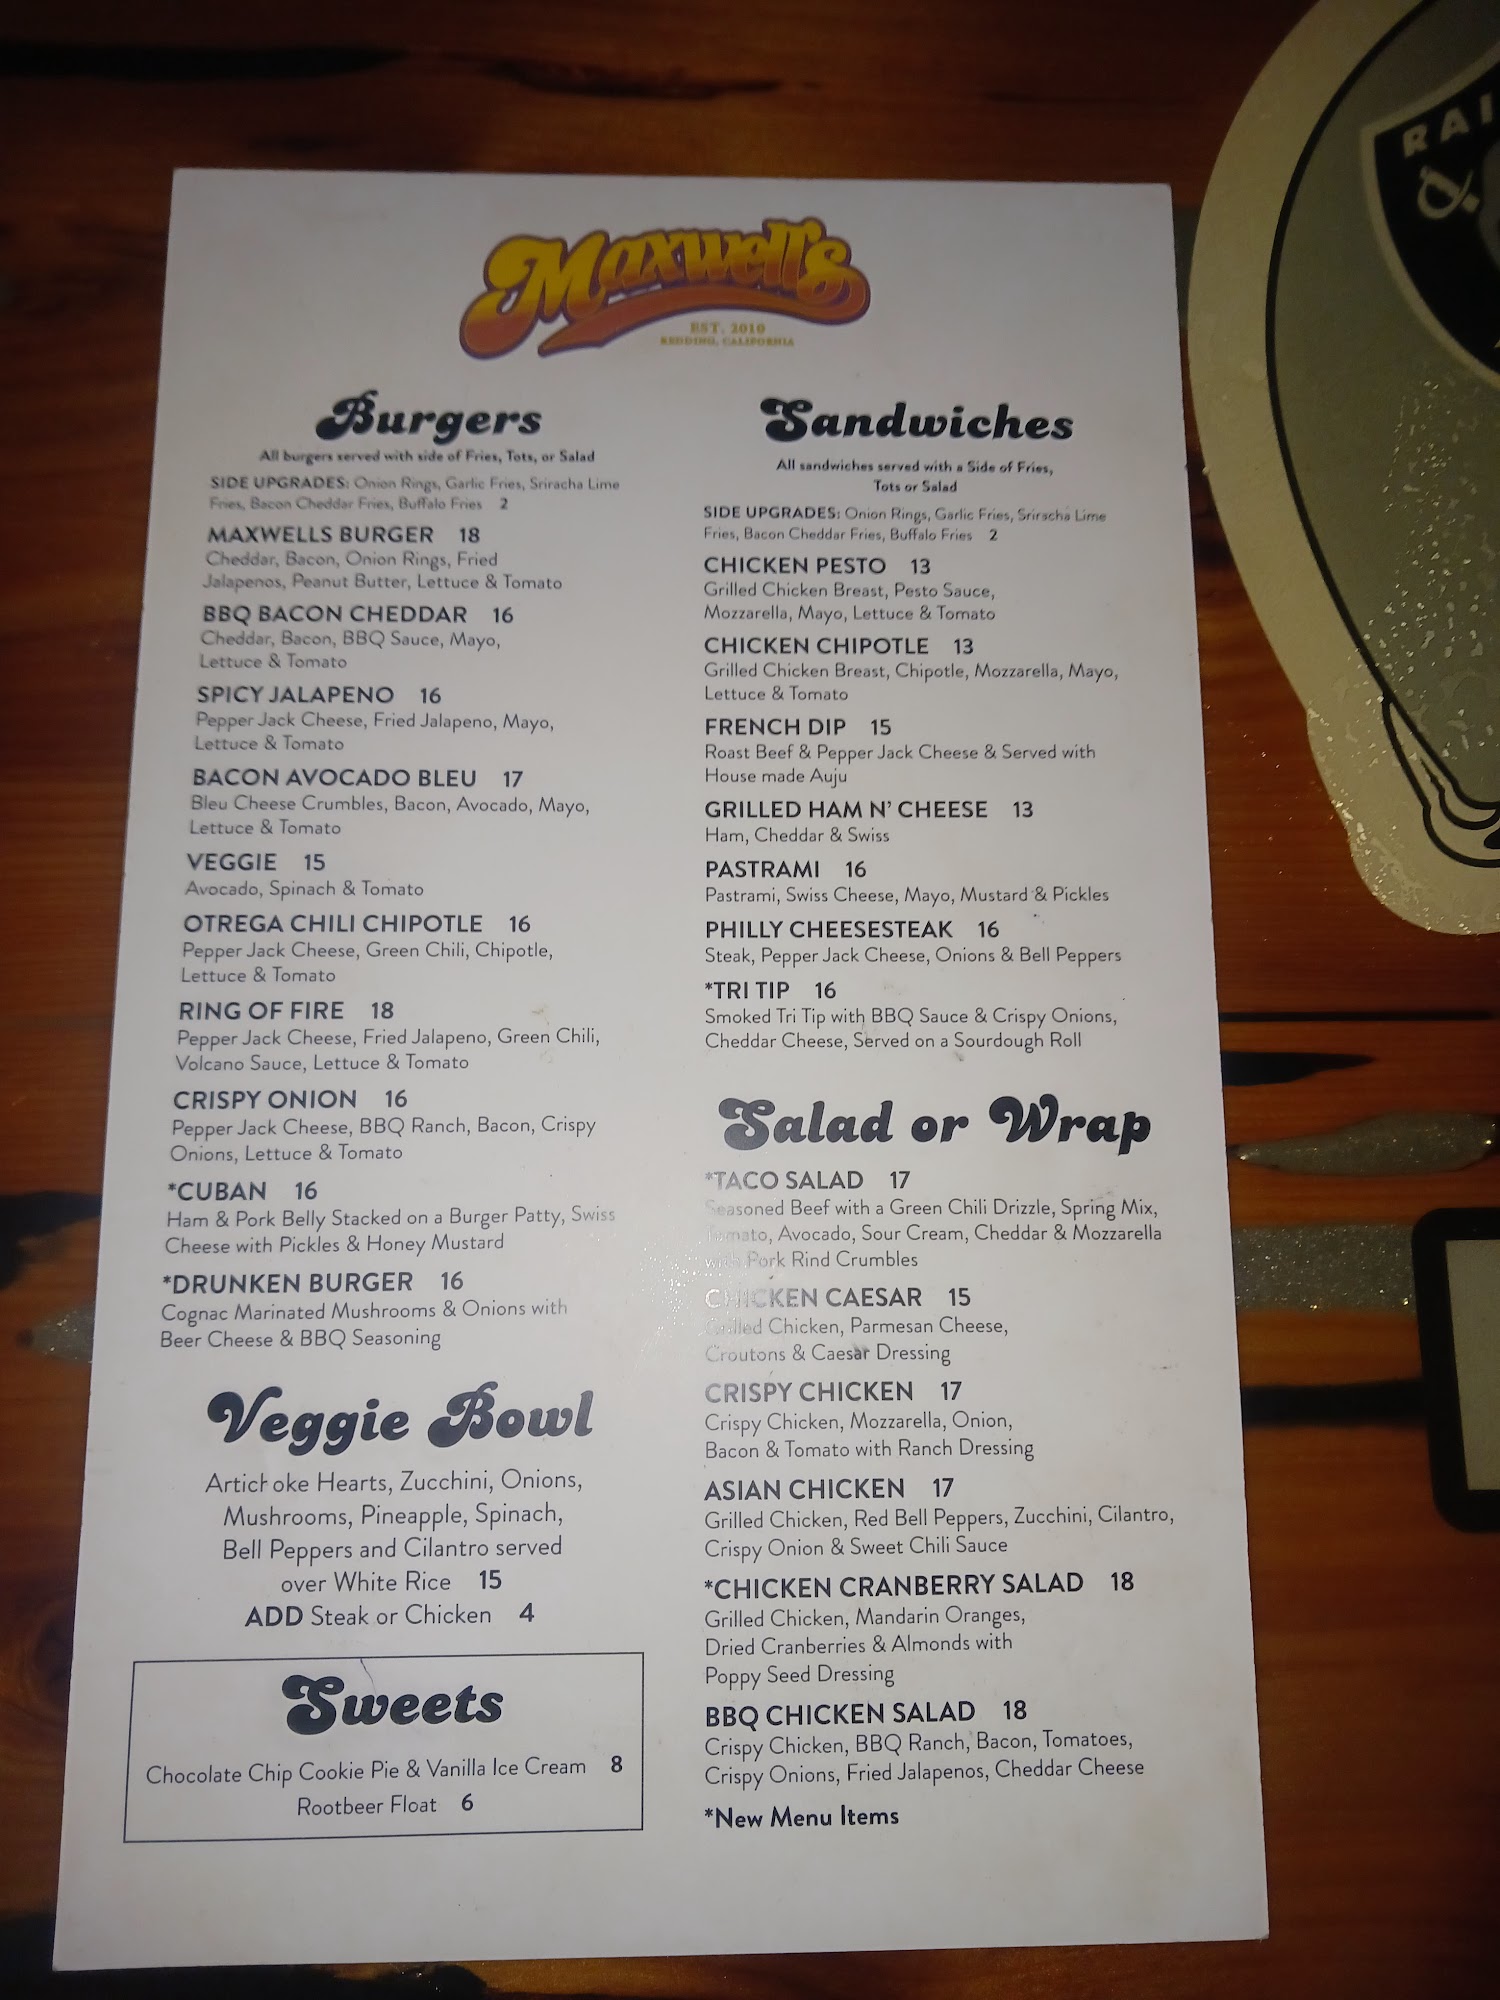 Maxwell's
EST. 2010
REDDING, CALIFORNIA
Burgers
All burgers served with side of Fries, Tots, or Salad
SIDE UPGRADES: Onion Rings, Garlic Fries, Sriracha Lime
Fries, Bacon Cheddar Fries, Buffalo Fries 2
MAXWELLS BURGER 18
Cheddar, Bacon, Onion Rings, Fried
Jalapenos, Peanut Butter, Lettuce & Tomato
BBQ BACON CHEDDAR 16
Cheddar, Bacon, BBQ Sauce, Mayo,
Lettuce & Tomato
SPICY JALAPENO 16
Pepper Jack Cheese, Fried Jalapeno, Mayo,
Lettuce & Tomato
BACON AVOCADO BLEU 17
Bleu Cheese Crumbles, Bacon, Avocado, Mayo,
Lettuce & Tomato
VEGGIE 15
Avocado, Spinach & Tomato
OTREGA CHILI CHIPOTLE 16
Pepper Jack Cheese, Green Chili, Chipotle,
Lettuce & Tomato
RING OF FIRE 18
Pepper Jack Cheese, Fried Jalapeno, Green Chili,
Volcano Sauce, Lettuce & Tomato
CRISPY ONION 16
Pepper Jack Cheese, BBQ Ranch, Bacon, Crispy
Onions, Lettuce & Tomato
*CUBAN 16
Ham & Pork Belly Stacked on a Burger Patty, Swiss
Cheese with Pickles & Honey Mustard
*DRUNKEN BURGER 16
Cognac Marinated Mushrooms & Onions with
Beer Cheese & BBQ Seasoning
Veggie Bowl
Artichoke Hearts, Zucchini, Onions,
Mushrooms, Pineapple, Spinach,
Bell Peppers and Cilantro served
over White Rice 15
ADD Steak or Chicken 4
Sweets
Chocolate Chip Cookie Pie & Vanilla Ice Cream 8
Rootbeer Float 6
Sandwiches
All sandwiches served with a Side of Fries,
Tots or Salad
SIDE UPGRADES: Onion Rings, Garlic Fries, Sriracha Lime
Fries, Bacon Cheddar Fries, Buffalo Fries 2
CHICKEN PESTO 13
Grilled Chicken Breast, Pesto Sauce,
Mozzarella, Mayo, Lettuce & Tomato
CHICKEN CHIPOTLE 13
Grilled Chicken Breast, Chipotle, Mozzarella, Mayo,
Lettuce & Tomato
FRENCH DIP 15
Roast Beef & Pepper Jack Cheese & Served with
House made Auju
GRILLED HAM N' CHEESE 13
Ham, Cheddar & Swiss
PASTRAMI 16
Pastrami, Swiss Cheese, Mayo, Mustard & Pickles
PHILLY CHEESESTEAK 16
Steak, Pepper Jack Cheese, Onions & Bell Peppers
*TRI TIP 16
Smoked Tri Tip with BBQ Sauce & Crispy Onions,
Cheddar Cheese, Served on a Sourdough Roll
Salad or Wrap
*TACO SALAD 17
Seasoned Beef with a Green Chili Drizzle, Spring Mix,
Tomato, Avocado, Sour Cream, Cheddar & Mozzarella
with Pork Rind Crumbles
CHICKEN CAESAR 15
Grilled Chicken, Parmesan Cheese,
Croutons & Caesar Dressing
CRISPY CHICKEN 17
Crispy Chicken, Mozzarella, Onion,
Bacon & Tomato with Ranch Dressing
ASIAN CHICKEN 17
Grilled Chicken, Red Bell Peppers, Zucchini, Cilantro,
Crispy Onion & Sweet Chili Sauce
*CHICKEN CRANBERRY SALAD 18
Grilled Chicken, Mandarin Oranges,
Dried Cranberries & Almonds with
Poppy Seed Dressing
BBQ CHICKEN SALAD 18
Crispy Chicken, BBQ Ranch, Bacon, Tomatoes,
Crispy Onions, Fried Jalapenos, Cheddar Cheese
*New Menu Items
RAI